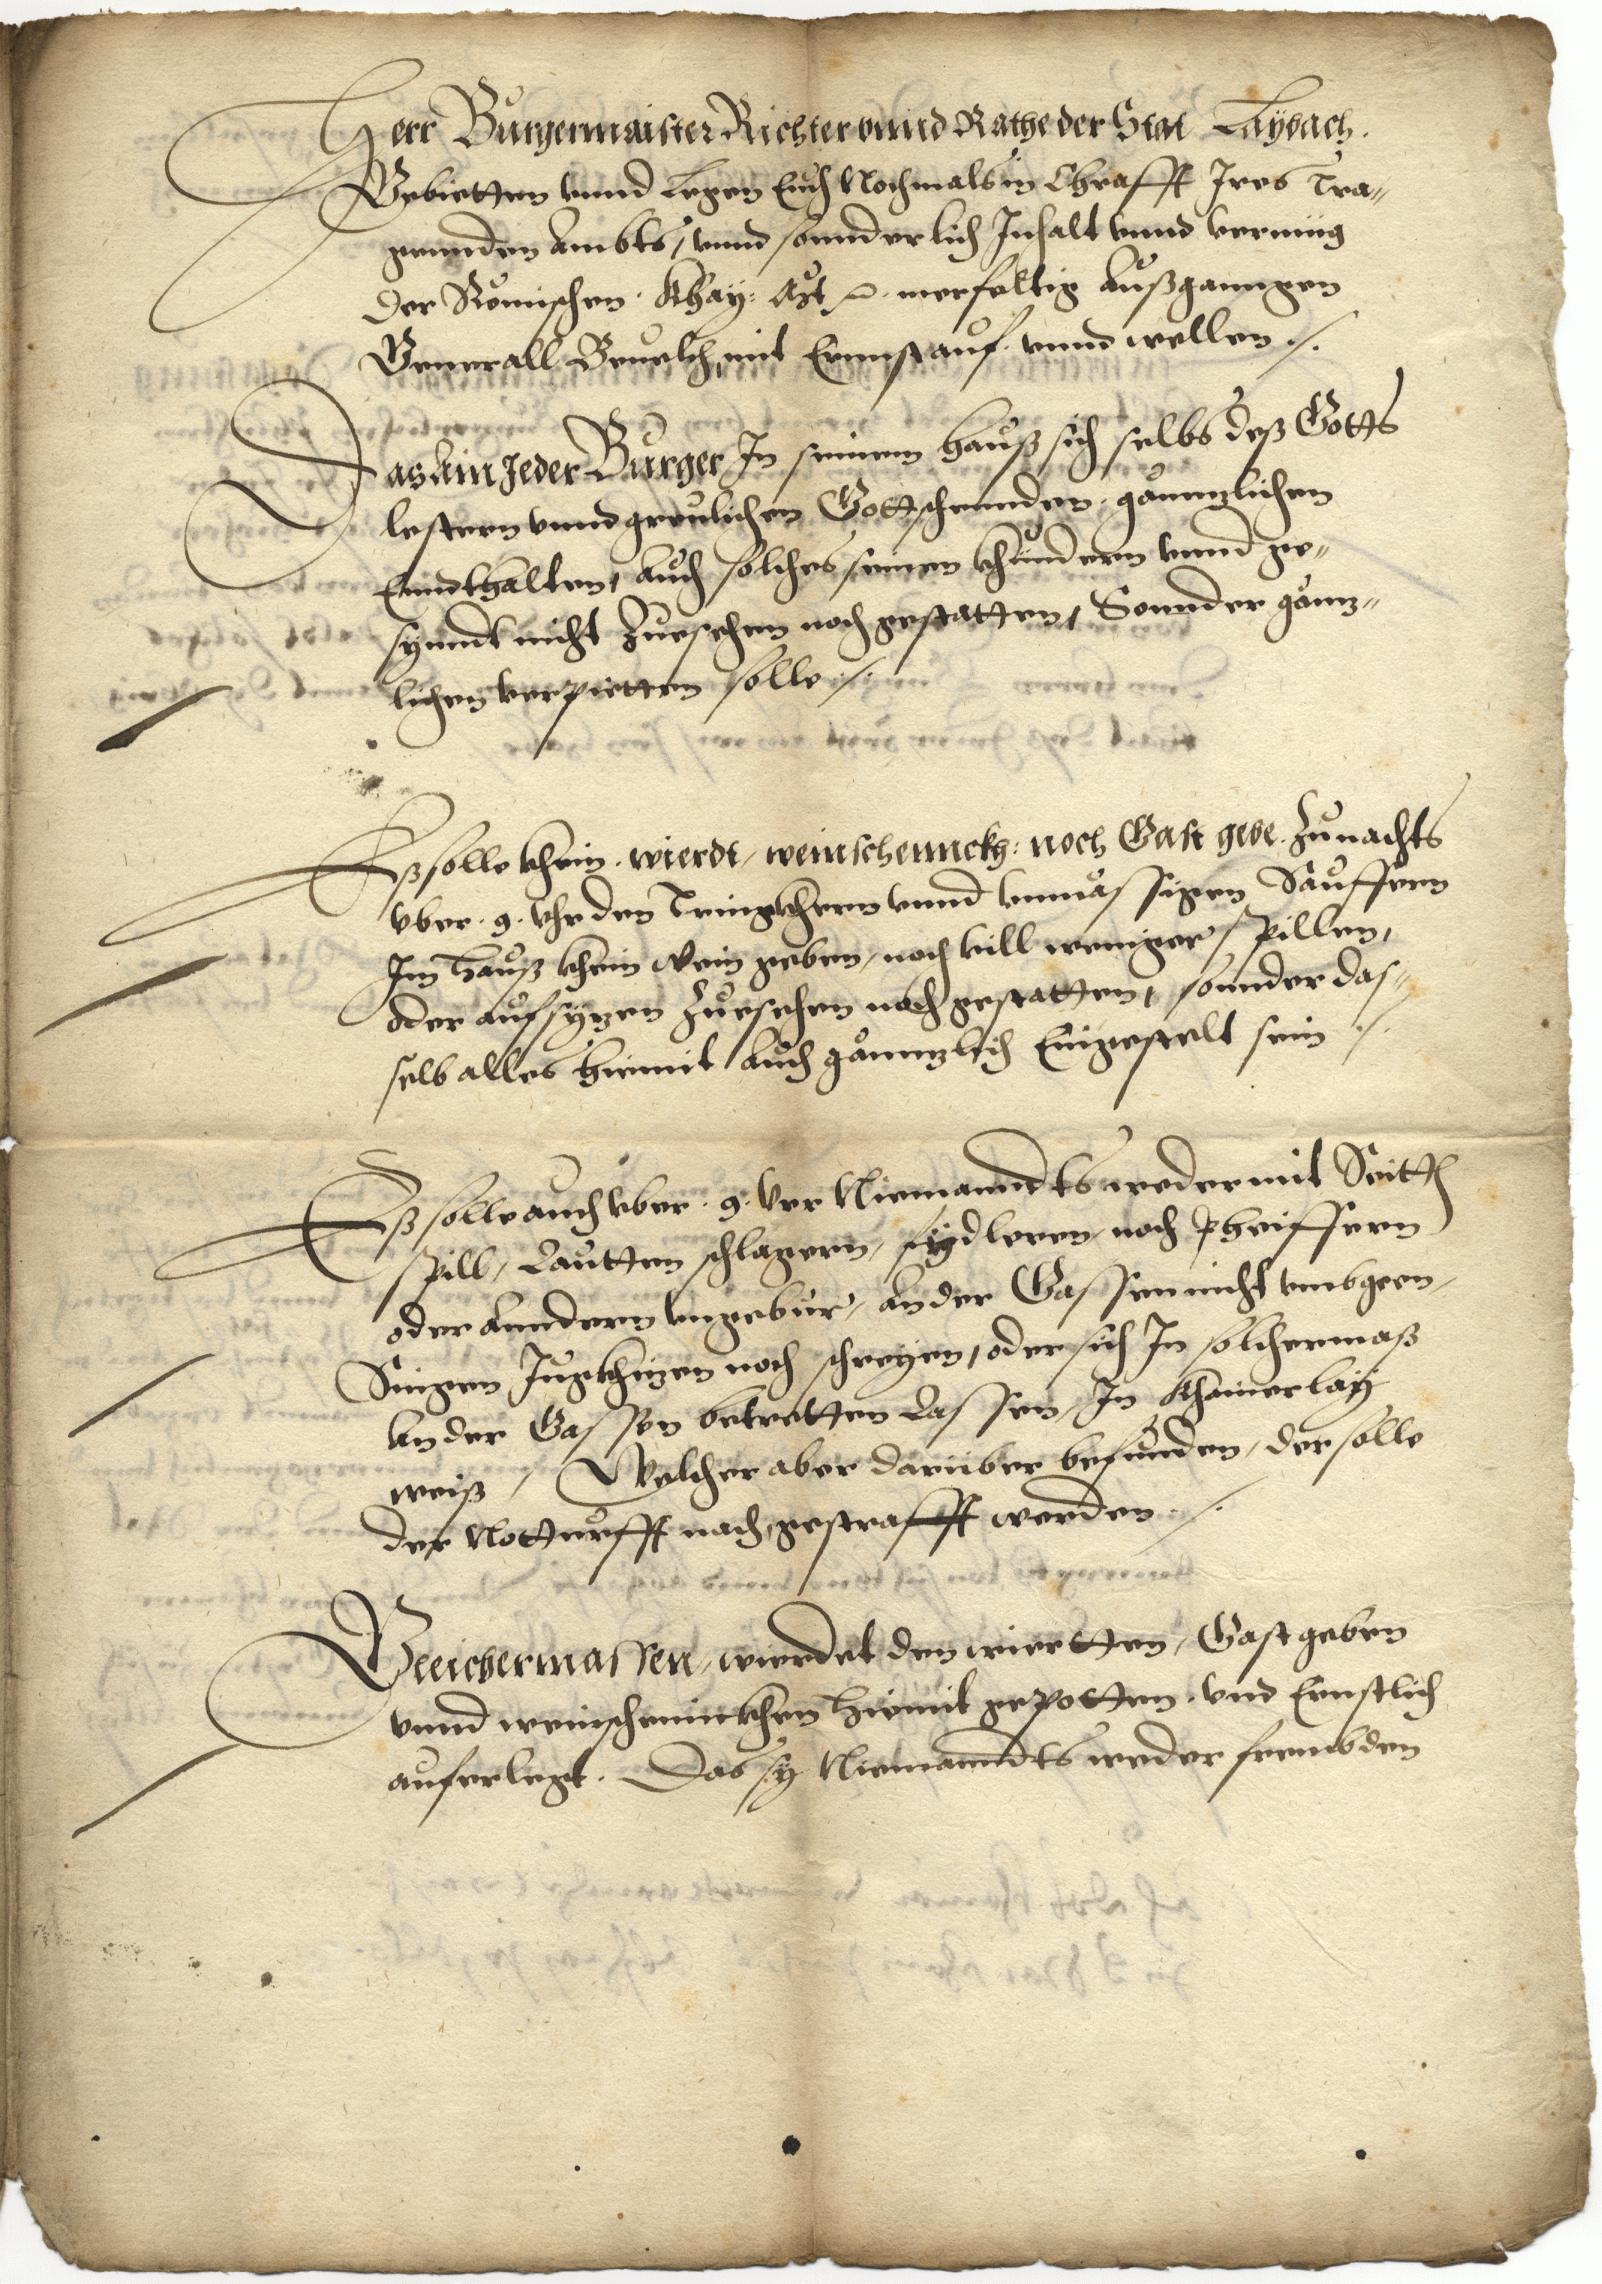 Herr Burgermaister Richter vnnd Rathe der Stat Laybach.
Gebietten vnnd Legen Euch Nochmals in Chrafft Ires Tra¬
genndenn Ambts, vnnd sonnderlich Inhalt vnnd vermüg
der Römischen. Khay: Mt &. merfeltig Außganngen
Generall Beuelch, mit Ernnst auf. vnnd wellen ./.
Das Ain Jeder Burger In seinem hauß sich selbs deß Gotts
lestern vnnd greulichen Gottschennden, gännzlichen
Ennthalten, auch solches seinen khindern vnnd ge¬
synndt nicht Zuesehen noch gestatten, Sonnder gännz¬
lichen verpietten solle ./.
Eß solle khein. wierdt, weinschennckh: noch Gast gebe. Zu nachts
vber. 9. vhr den Tringkhern vnnd vnmässigen Sauffern
Im hauß khein Wein geben, noch vill weniger spillen,
oder aufsyzen Zuesehen noch gestatten, sonnder das¬
selb alles hiemit auch gännzlich Eingestelt sein ./.
Eß solle auch vber. 9. Vr Niemanndts weder mit Seitten
spill, Lautten schlagern, fydleren, noch Pheiffern
oder Anndern vngebür, an der Gassen nicht vmbgeen,
Singen Jugkhizen noch schreyen, oder sich In solchermaß
an der Gassen betretten Lassen, In khainerlay
weiß, Welcher aber darüber befunden, der solle
der Notturfft nach, gestrafft werden ./.
Gleichermassen, wierdet den wiertten, Gastgeben
vnnd weinschennckhen hiemit gepotten. vnd Ernstlich
auferlegt. Das sy Niemanndts weder frembden